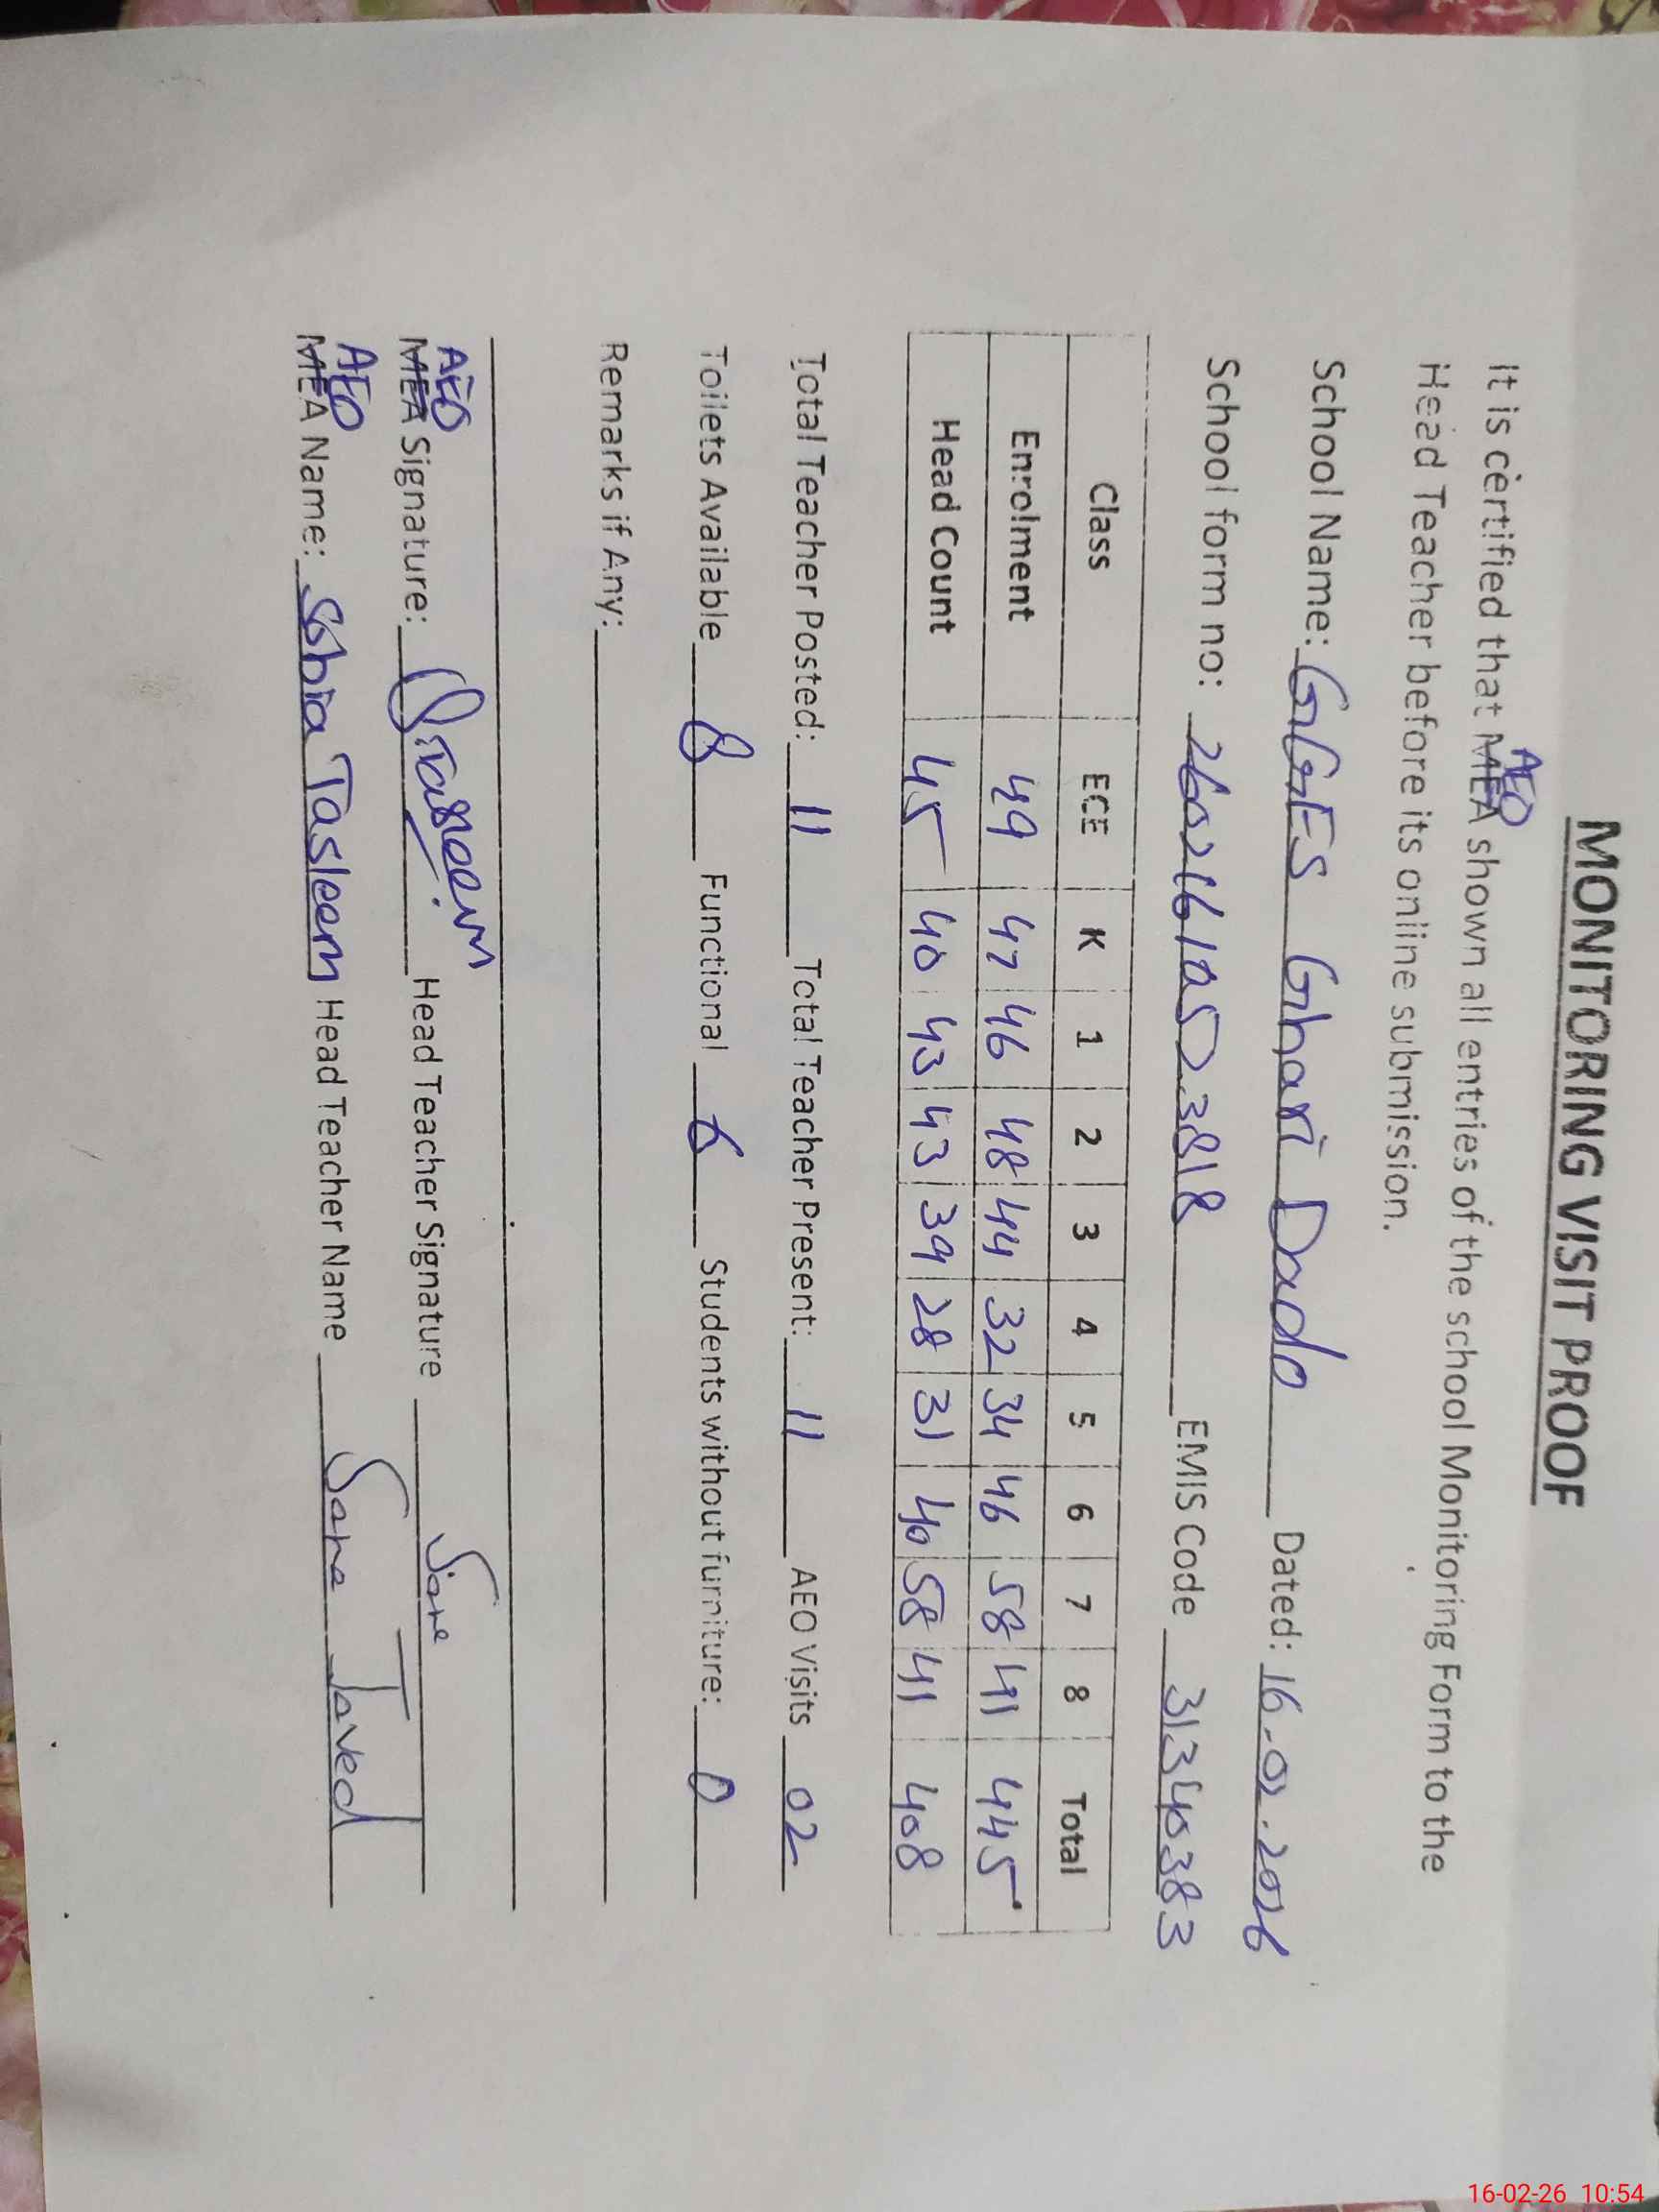 MONITORING VISIT PROOF
It is certified that MEA AEO shown all entries of the school Monitoring Form to the
Head Teacher before its online submission.
School Name: GGES Ghari Dado Dated: 16.02.2026
School form no: EMIS Code 31340383
Class ECE K 1 2 3 4 5 6 7 8 Total
Enrolment 49 47 46 48 44 32 34 46 58 41 445
Head Count 45 40 43 43 39 28 31 40 58 41 408
Total Teacher Posted: 11 Total Teacher Present: 11 AEO Visits 02
Toilets Available 8 Functional 6 Students without furniture: 0
Remarks if Any:
MEA AEO Signature: Tasleem Head Teacher Signature Sana
MEA AEO Name: Sobia Tasleem Head Teacher Name Sana Javed
16-02-26 10:54